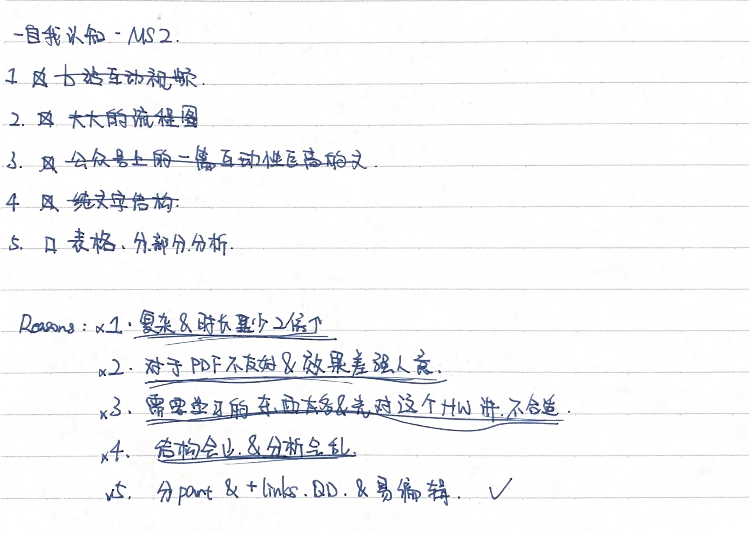 -自我认知-MS2.
1 ☒ b站互动视频.
2. ☒ 大大的流程图
3. ☒ 公众号上的一篇互动性巨高的文.
4 ☒ 纯文字结构.
5. ☐ 表格、分部分分析.
Reasons: x1. 复杂&时长至少2倍↑
x2. 对于PDF不友好&效果差强人意.
x3. 需要学习的东西太多&光对这个HW讲.不合适.
x4. 结构会&分析会乱.
v5. 分part & +links.QD.&易编辑. ✓